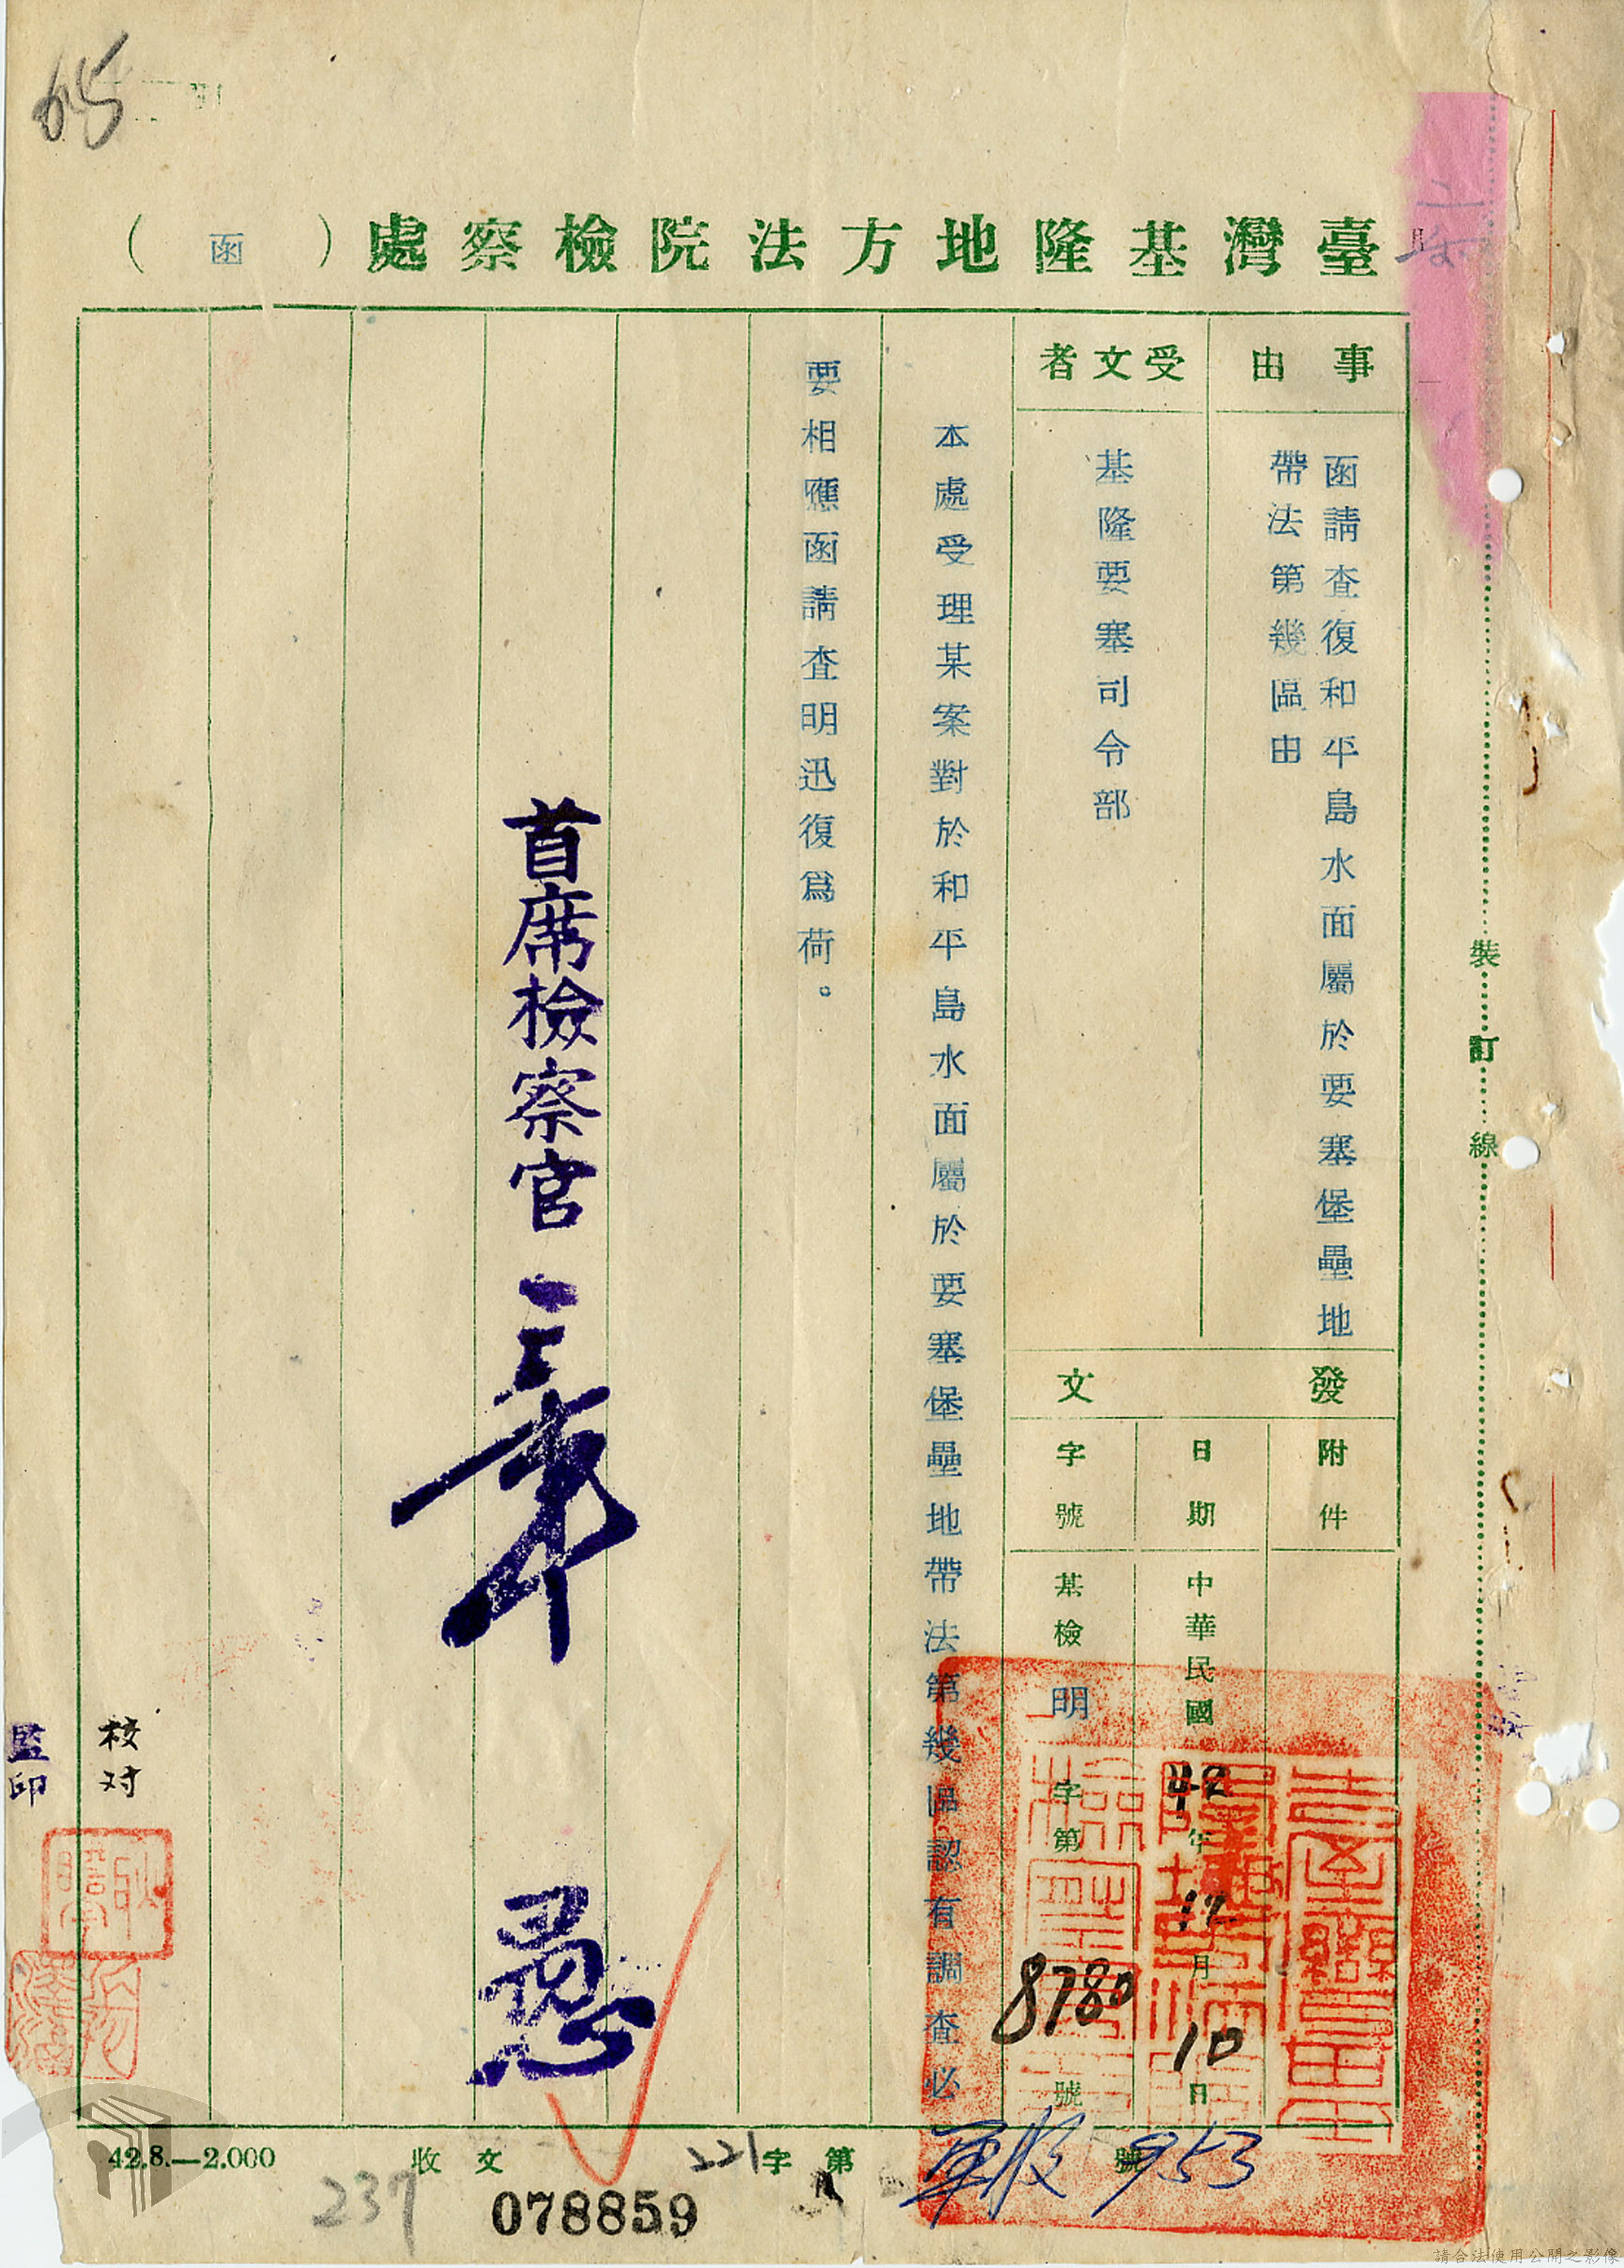 65
臺灣基隆地方法院檢察處(函)
事由
函請查復和平島水面屬於要塞堡壘地
帶法第幾區由
受文者
基隆要塞司令部
發文
附件
日期
中華民國42年12月10日
字號
基檢明字第8780號
本處受理某案對於和平島水面屬於要塞堡壘地帶法第幾區認有調查必
要相應函請查明迅復爲荷。
首席檢察官
愚
校对
監印
裝訂線
42.8.—2.000
收文
字第
號
221
953
237
078859
請合法使用公開之影像